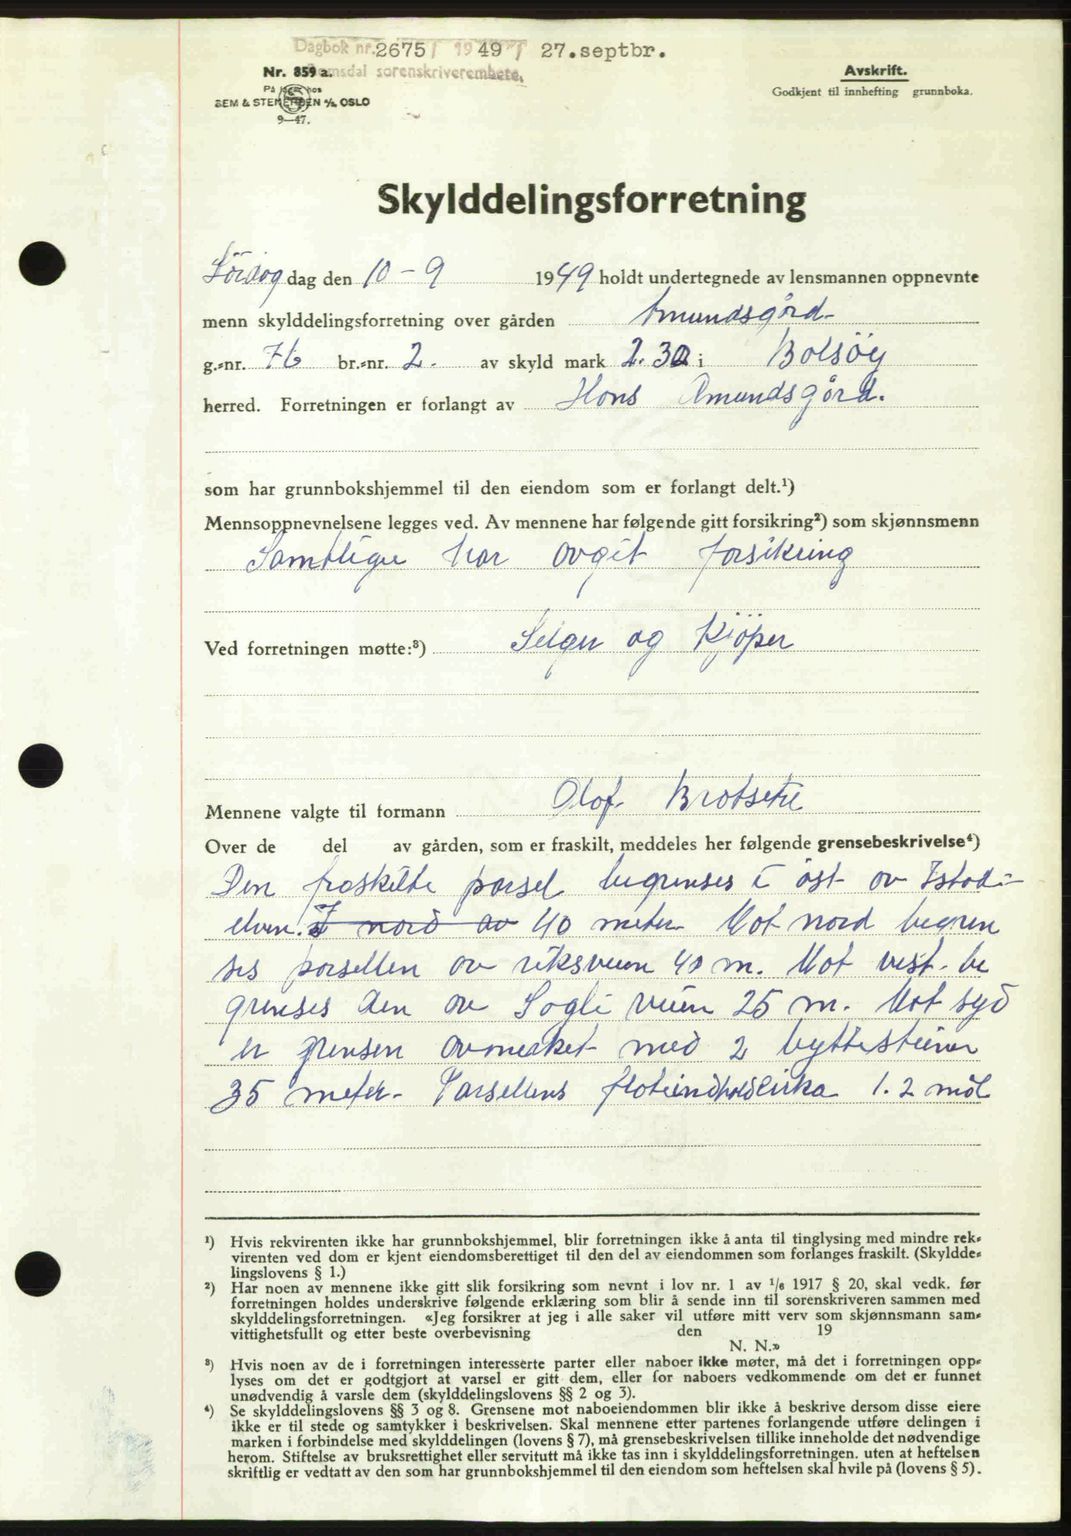 Dagbok nr. 2675 / 1949 / 27.septbr.
Romsdal sorenskriverembete.
Nr. 859 a.
På lager hos
SEM & STENERSEN A/S, OSLO
9—47.
Avskrift.
Godkjent til innhefting grunnboka.
Skylddelingsforretning
Lördag dag den 10 - 9 1949 holdt undertegnede av lensmannen oppnevnte
menn skylddelingsforretning over gården Amundsgård
g.-nr. 76 br.-nr. 2. av skyld mark 2.32 i Bolsöy
herred. Forretningen er forlangt av Hans Amundsgård.
som har grunnbokshjemmel til den eiendom som er forlangt delt.¹)
Mennsoppnevnelsene legges ved. Av mennene har følgende gitt forsikring²) som skjønnsmenn
Samtlige har avgit forsikring
Ved forretningen møtte:³) Selger og Kjöper
Mennene valgte til formann Olaf Brotsetre
Over de del av gården, som er fraskilt, meddeles her følgende grensebeskrivelse⁴)
Den fraskilte parsel begrenses i öst av Istad-
elven. I nord av 40 meter Mot nord begren
ses parsellen av riksveien 40 m. Mot vest be
grenses den av Sogli veien 25 m. Mot syd
er grensen avmerket med 2 byttesteiner
35 meter. Parsellens flateindhold cirka 1.2 mål
¹) Hvis rekvirenten ikke har grunnbokshjemmel, blir forretningen ikke å anta til tinglysing med mindre rek-
virenten ved dom er kjent eiendomsberettiget til den del av eiendommen som forlanges fraskilt. (Skyldde-
lingslovens § 1.)
²) Har noen av mennene ikke gitt slik forsikring som nevnt i lov nr. 1 av 1/6 1917 § 20, skal vedk. før
forretningen holdes underskrive følgende erklæring som blir å sende inn til sorenskriveren sammen med
skylddelingsforretningen. «Jeg forsikrer at jeg i alle saker vil utføre mitt verv som skjønnsmann sam-
vittighetsfullt og etter beste overbevisning den 19
N. N.»
³) Hvis noen av de i forretningen interesserte parter eller naboer ikke møter, må det i forretningen opp-
lyses om det er godtgjort at varsel er gitt dem, eller for naboers vedkommende om det er funnet
unødvendig å varsle dem (skylddelingslovens §§ 2 og 3).
⁴) Se skylddelingslovens §§ 3 og 8. Grensene mot naboeiendommen blir ikke å beskrive dersom disse eiere
ikke er til stede og samtykker i beskrivelsen. Skal mennene etter partenes forlangende utføre delingen i
marken i forbindelse med skylddelingen (lovens § 7), må grensebeskrivelsen tillike inneholde det nødvendige
herom. Stiftelse av bruksrettighet eller servitutt må ikke tas inn i skylddelingsforretningen, uten at heftelsen
skriftlig er vedtatt av den som har grunnbokshjemmel til den eiendom som heftelsen skal hvile på (lovens § 5).